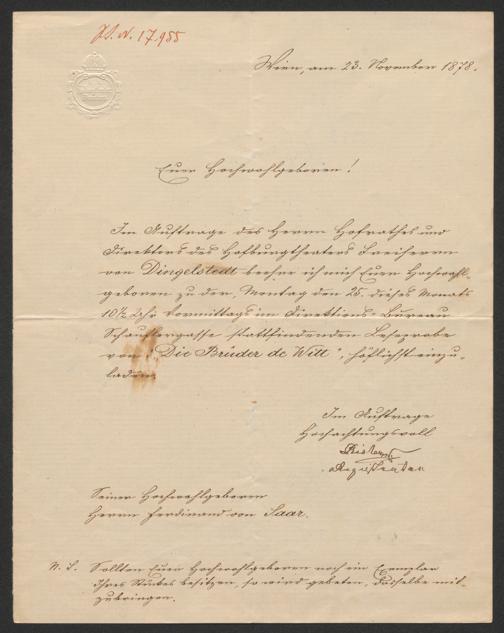 J. N. 17.955
Wien, am 23. November 1878.
Euer Hochwohlgeboren!
Im Auftrage des Herrn Hofrathes und
Direktors des Hofburgtheaters Freiherrn
von Dingelstedt beehre ich mich Euer Hochwohl-
geboren zu der, Montag den 25. dieses Monats
10½ Uhr Vormittags im Direktions-Bureau
Schauflergasse stattfindenden Leseprobe
von: "Die Brüder de Witt", höflichst einzu-
laden.
Im Auftrage
Hochachtungsvoll
Seiner Hochwohlgeboren
Herrn Ferdinand von Saar.
N. S. Sollten Euer Hochwohlgeboren noch ein Exemplar
Ihres Stückes besitzen, so wird gebeten, dasselbe mit-
zubringen.